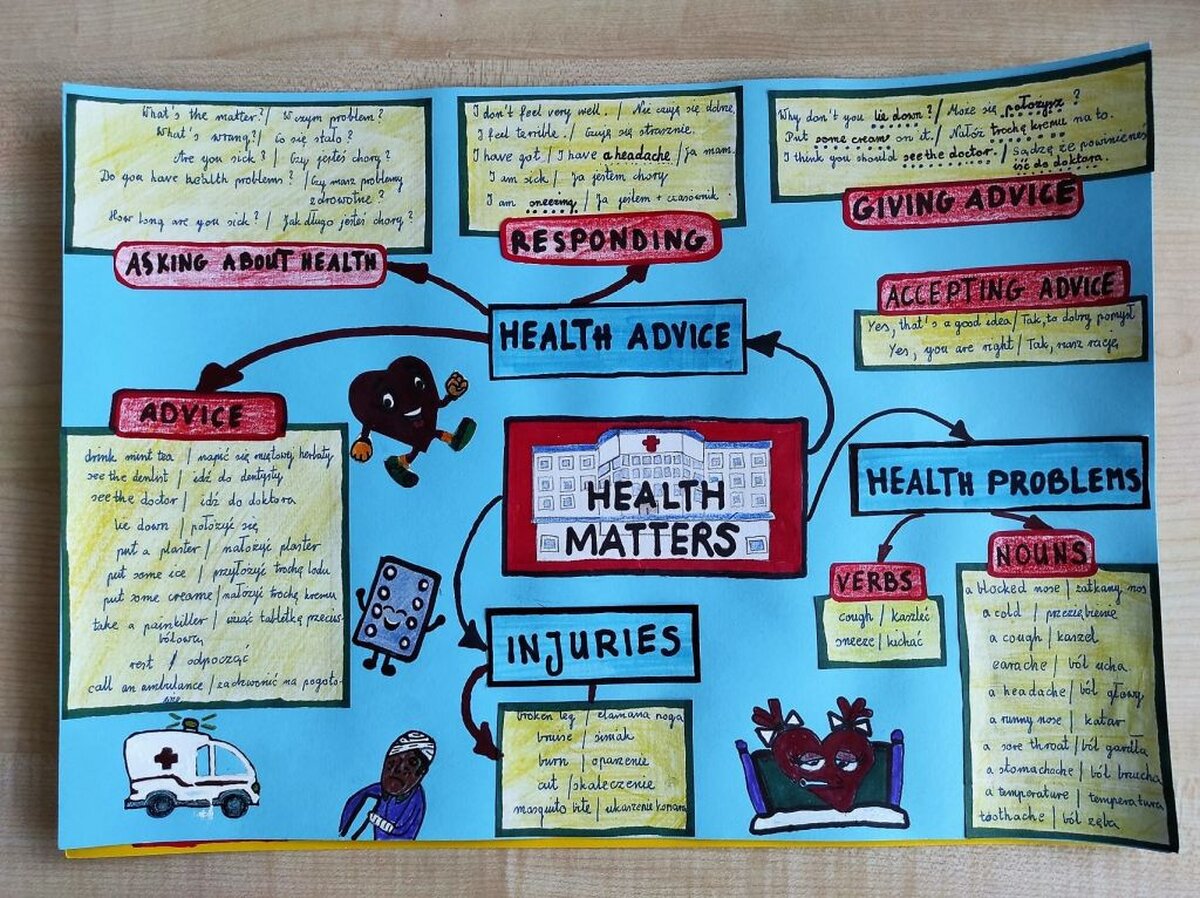 What's the matter? / W czym problem?
What's wrong? / Co się stało?
Are you sick? / Czy jesteś chory?
Do you have health problems? / Czy masz problemy
zdrowotne?
How long are you sick? / Jak długo jesteś chory?
ASKING ABOUT HEALTH
I don't feel very well. / Nie czuję się dobrze.
I feel terrible. / Czuję się strasznie.
I have got / I have a headache / Ja mam.
I am sick / Ja jestem chory
I am sneezing / Ja jestem + czasownik
RESPONDING
Why don't you lie down? / Może się położysz?
Put some cream on it. / Nałóż trochę kremu na to.
I think you should see the doctor. / Sądzę że powinieneś
iść do doktora.
GIVING ADVICE
ACCEPTING ADVICE
Yes, that's a good idea / Tak, to dobry pomysł
Yes, you are right / Tak, masz rację
HEALTH ADVICE
ADVICE
drink mint tea / napić się miętowej herbaty
see the dentist / idź do dentysty
see the doctor / idź do doktora
lie down / położyć się
put a plaster / nałożyć plaster
put some ice / przyłożyć trochę lodu
put some creame / nałożyć trochę kremu
take a painkiller / wziąć tabletkę przeciw-
bólową
rest / odpocząć
call an ambulance / zadzwonić na pogoto-
wie
HEALTH
MATTERS
HEALTH PROBLEMS
VERBS
cough / kaszleć
sneeze / kichać
NOUNS
a blocked nose / zatkany nos
a cold / przeziębienie
a cough / kaszel
earache / ból ucha
a headache / ból głowy
a runny nose / katar
a sore throat / ból gardła
a stomachache / ból brzucha
a temperature / temperatura
toothache / ból zęba
INJURIES
broken leg / złamana noga
bruise / siniak
burn / oparzenie
cut / skaleczenie
mosquito bite / ukąszenie komara